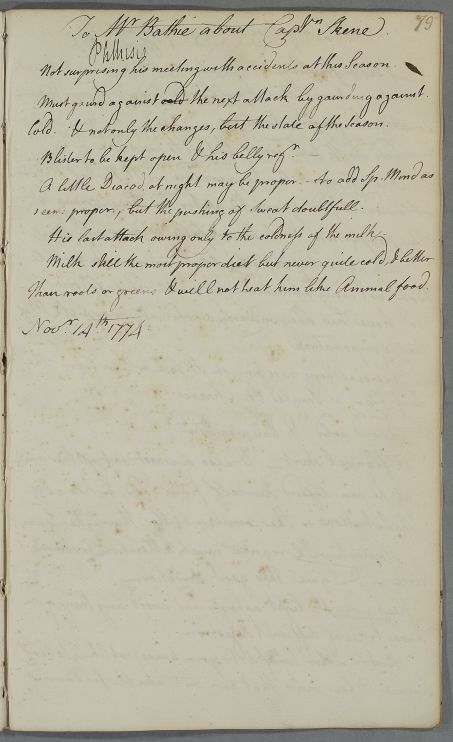 To Mr Bathie about Capt.n Skene. 79
Phthisis
Not surprising his meeting with accidents at this Season.
Must guard against cold the next attack by guarding against
Cold. & not only the changes, but the state of the Season.
Blister to be kept open & his belly regr.
A little Diacod. at night may be proper. - to add Sp. Mind as
seems proper, but the pushing of Sweat doubtfull.
His last attack owing only to the coldness of the milk,
Milk still the most proper diet but never quite cold, & better
than roots or greens & will not heat him like Animal food.
Novr. 14th 1774